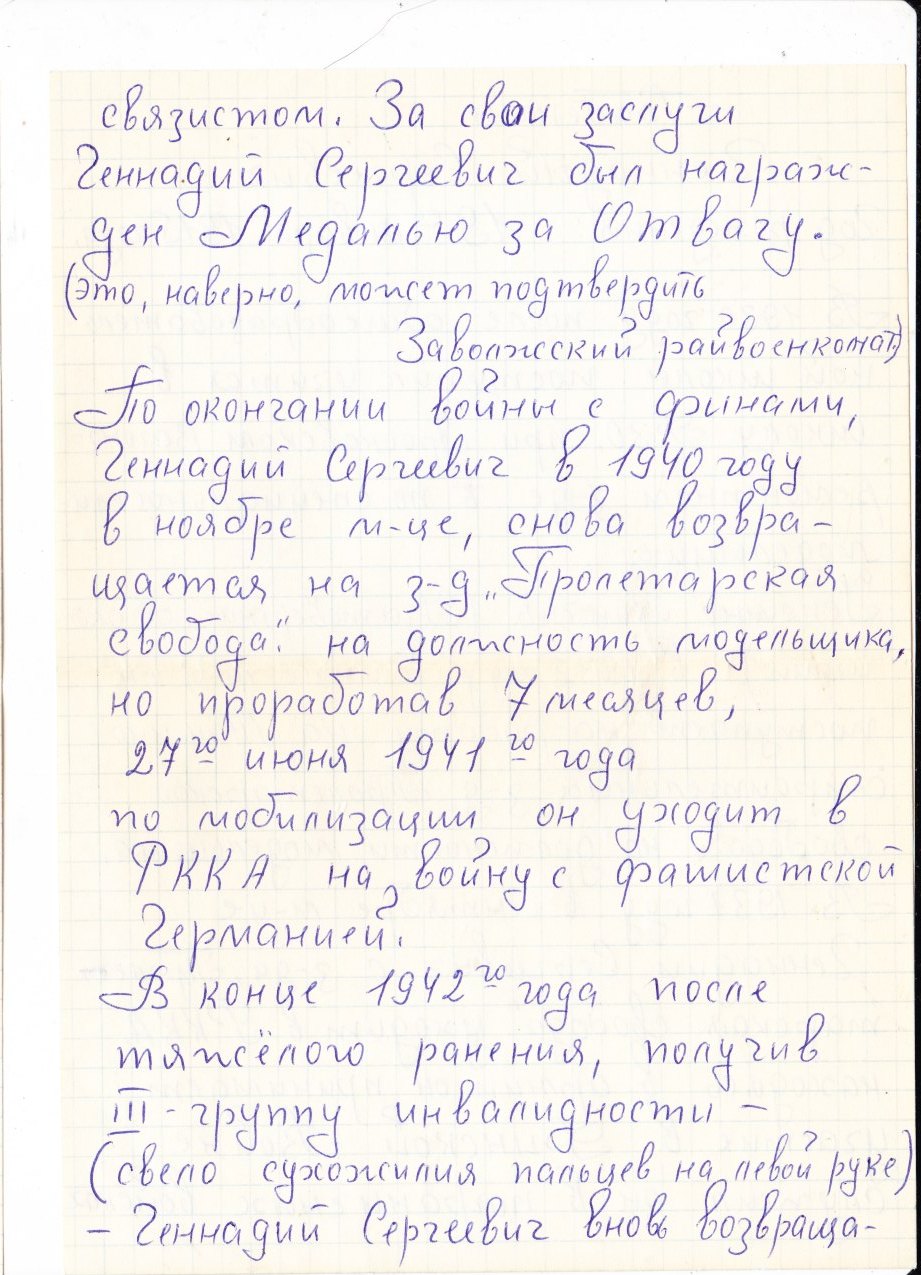 связистом. За свои заслуги
Геннадий Сергеевич был награж-
ден Медалью за Отвагу.
(это, наверно, может подтвердить
Заволжский райвоенкомат)
По окончании войны с финами,
Геннадий Сергеевич в 1940 году
в ноябре м-це, снова возвра-
щается на з-д „Пролетарская
свобода". на должность модельщика,
но проработав 7 месяцев,
27го июня 1941го года
по мобилизации он уходит в
РККА на войну с фашистской
Германией.
В конце 1942го года после
тяжёлого ранения, получив
III - группу инвалидности –
(свело сухожилия пальцев на левой руке)
– Геннадий Сергеевич вновь возвраща-